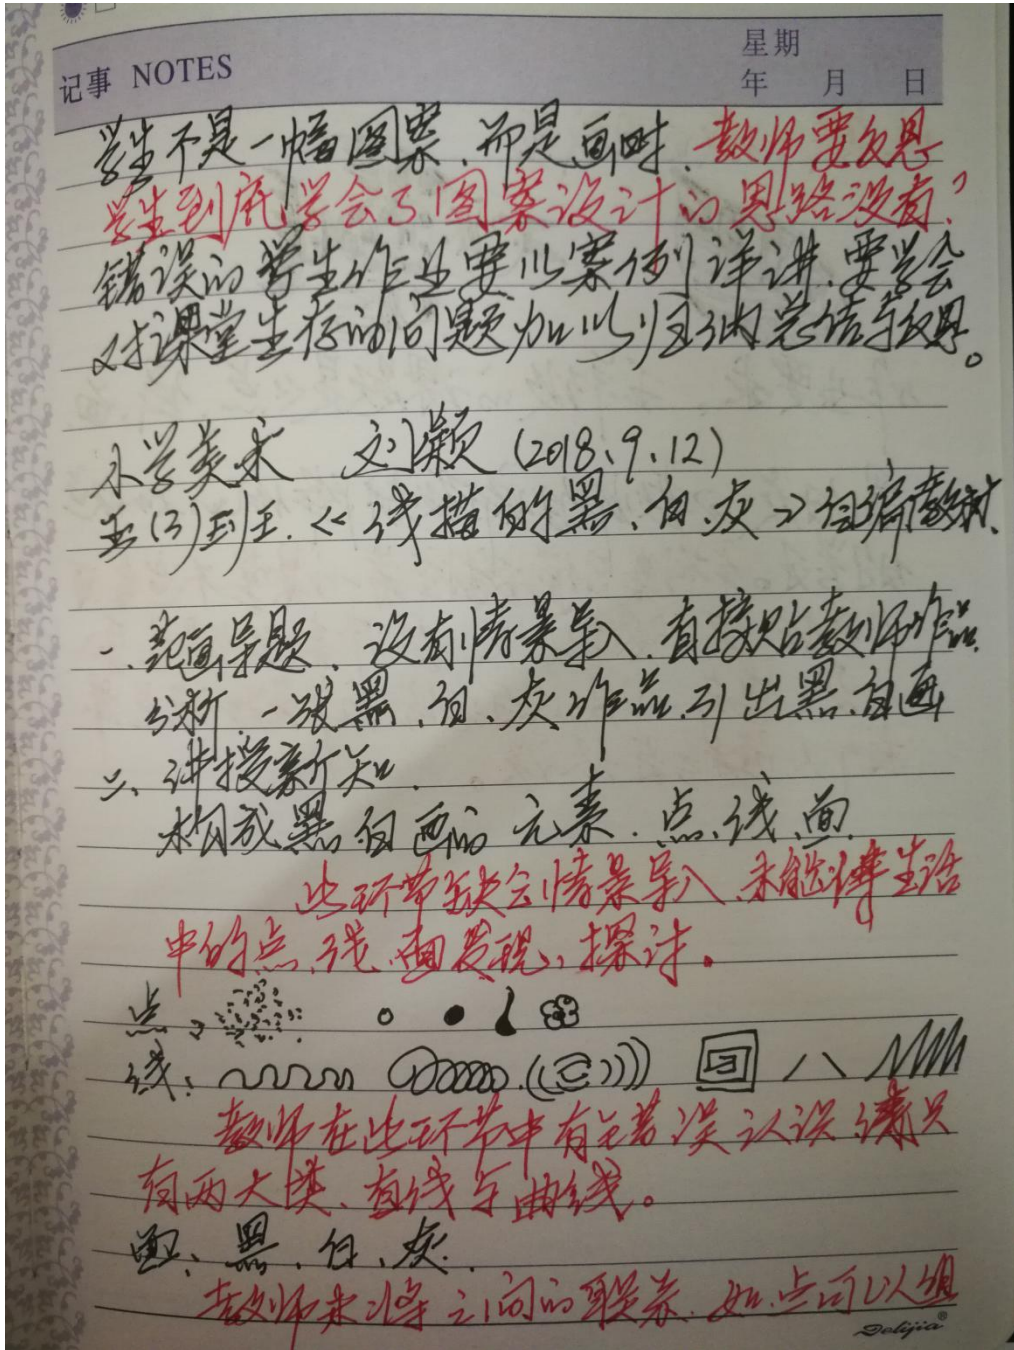 记事 NOTES
星期
年 月 日
学生不是一幅图案、而是画时、教师要反思
学生到底学会了图案设计的思路没有？
错误的学生作业要以案例详讲、要学会
对课堂生存的问题加以归纳总结与反思。
小学美术 刘颖（2018、9、12）
五（3）班 《线描的黑、白、灰》自编教材、
一、范画导题、没有情景导入、直接贴教师作品
分析 一张黑、白、灰作品、引出黑、白画
二、讲授新知、
构成黑白画的元素、点、线、面
此环节缺乏情景导入、未能讲生活
中的点、线、面发现、探讨。
点：
线：
教师在此环节中有错误认识、线只
有两大类、直线与曲线。
面：黑、白、灰、
教师未将之间的联系、如、点可以组
Delijia®